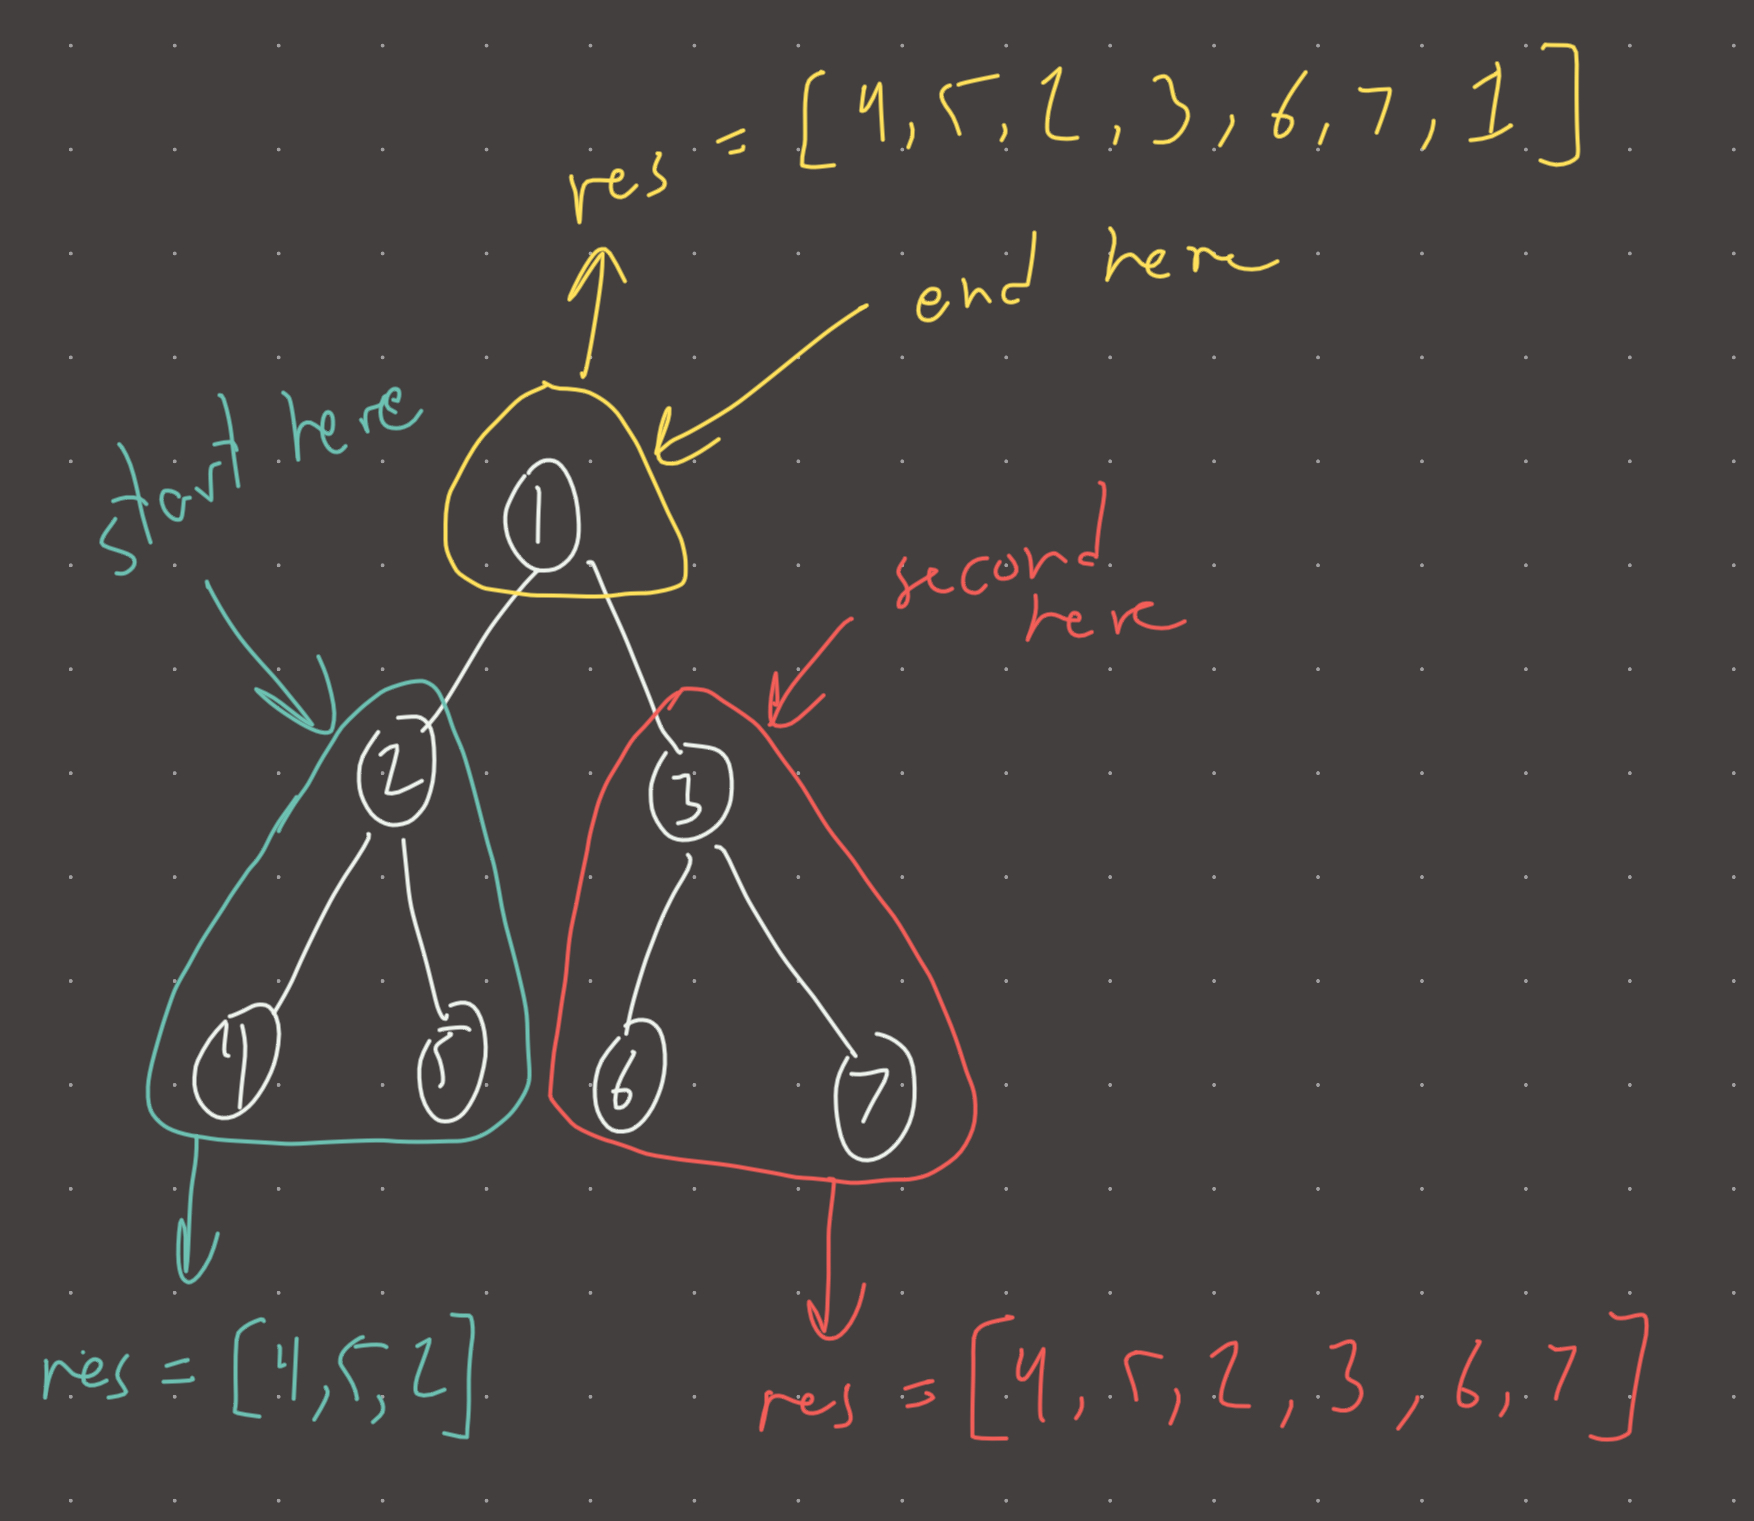 res = [4, 5, 2, 3, 6, 7, 1]
end here
start here
1
second
here
2
3
4
5
6
7
res = [4, 5, 2]
res = [4, 5, 2, 3, 6, 7]